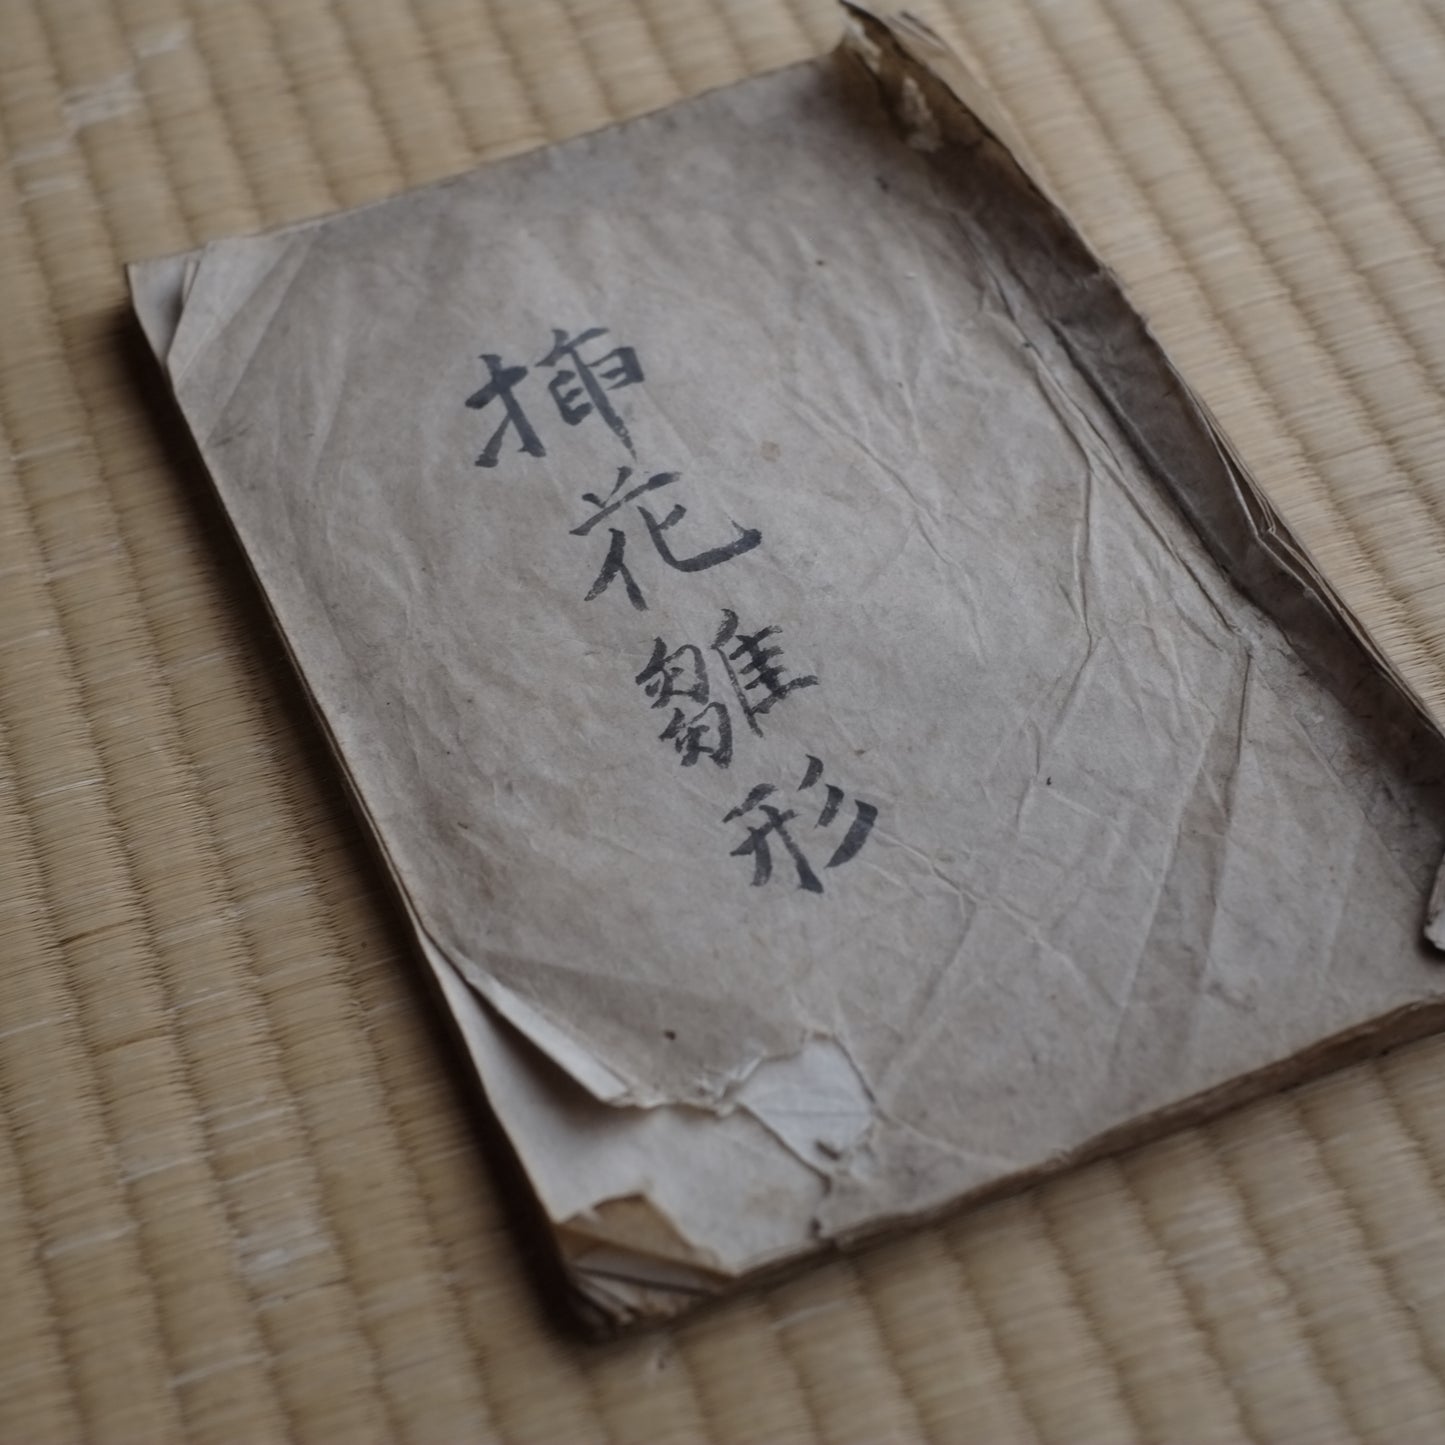 挿花雛形